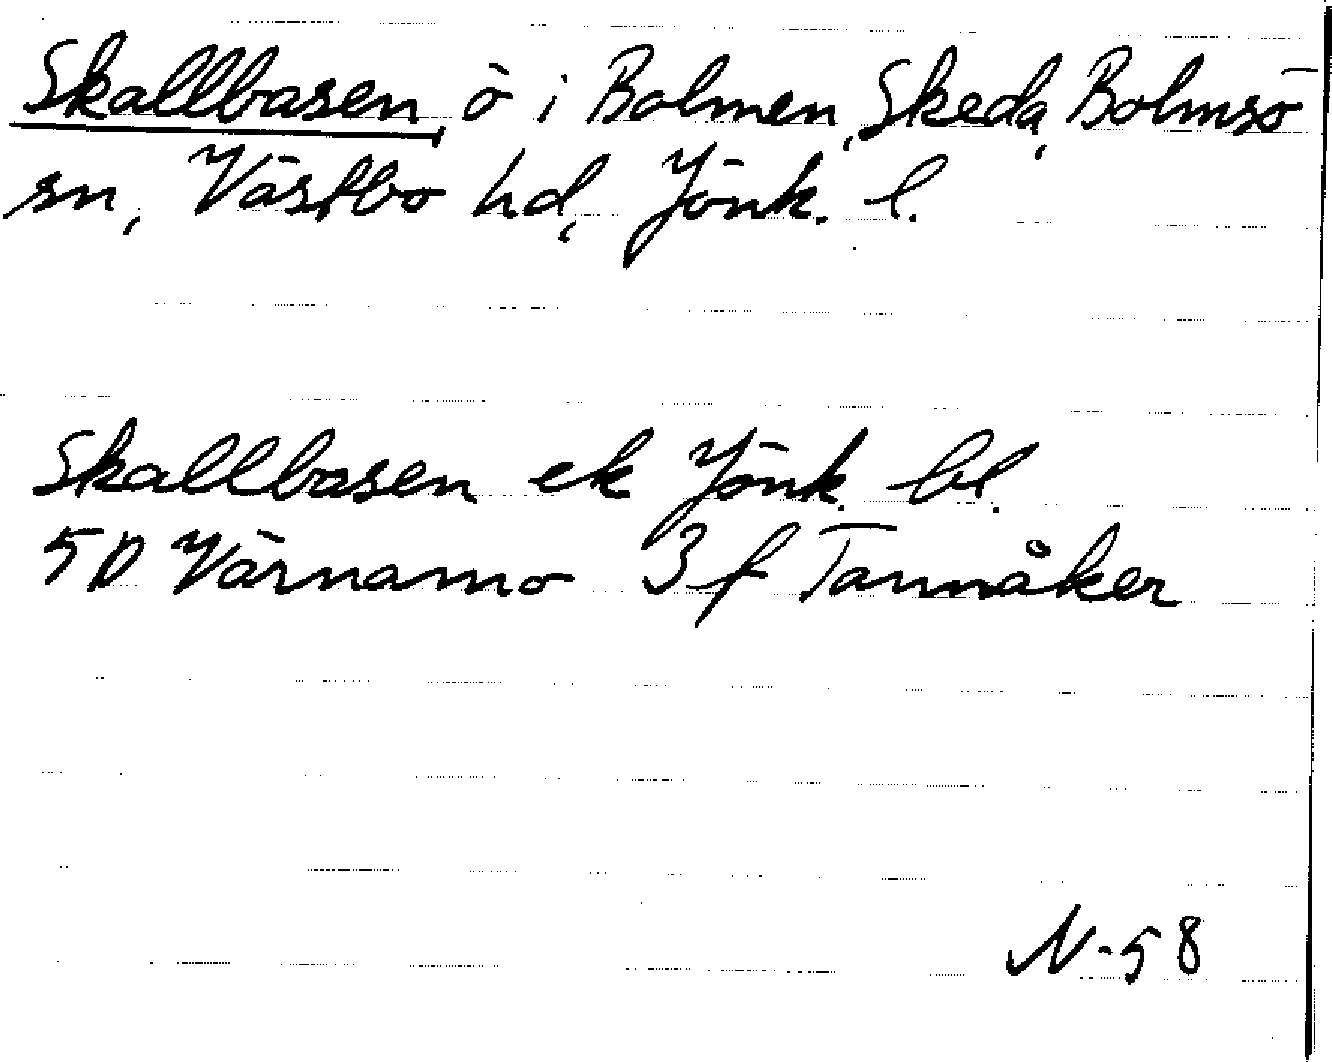 Skallbasen, ö i Bolmen, Skeda, Bolmsö
sn, Västbo hd, Jönk. l.
Skallbasen ek Jönk. bl.
5D Värnamo 3 f Tannåker
N-58